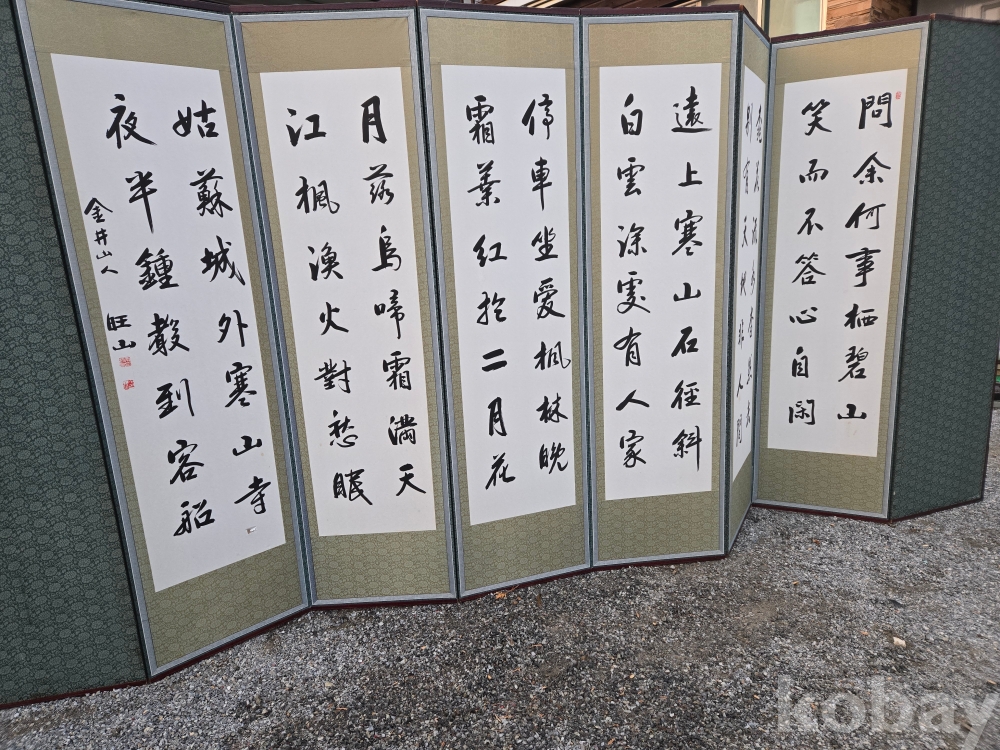 問余何事栖碧山
笑而不答心自閑
桃花流水杳然去
別有天地非人間
遠上寒山石徑斜
白雲深處有人家
停車坐愛楓林晚
霜葉紅於二月花
月落烏啼霜滿天
江楓漁火對愁眠
姑蘇城外寒山寺
夜半鍾聲到客船
金井山人 旺山
kobay